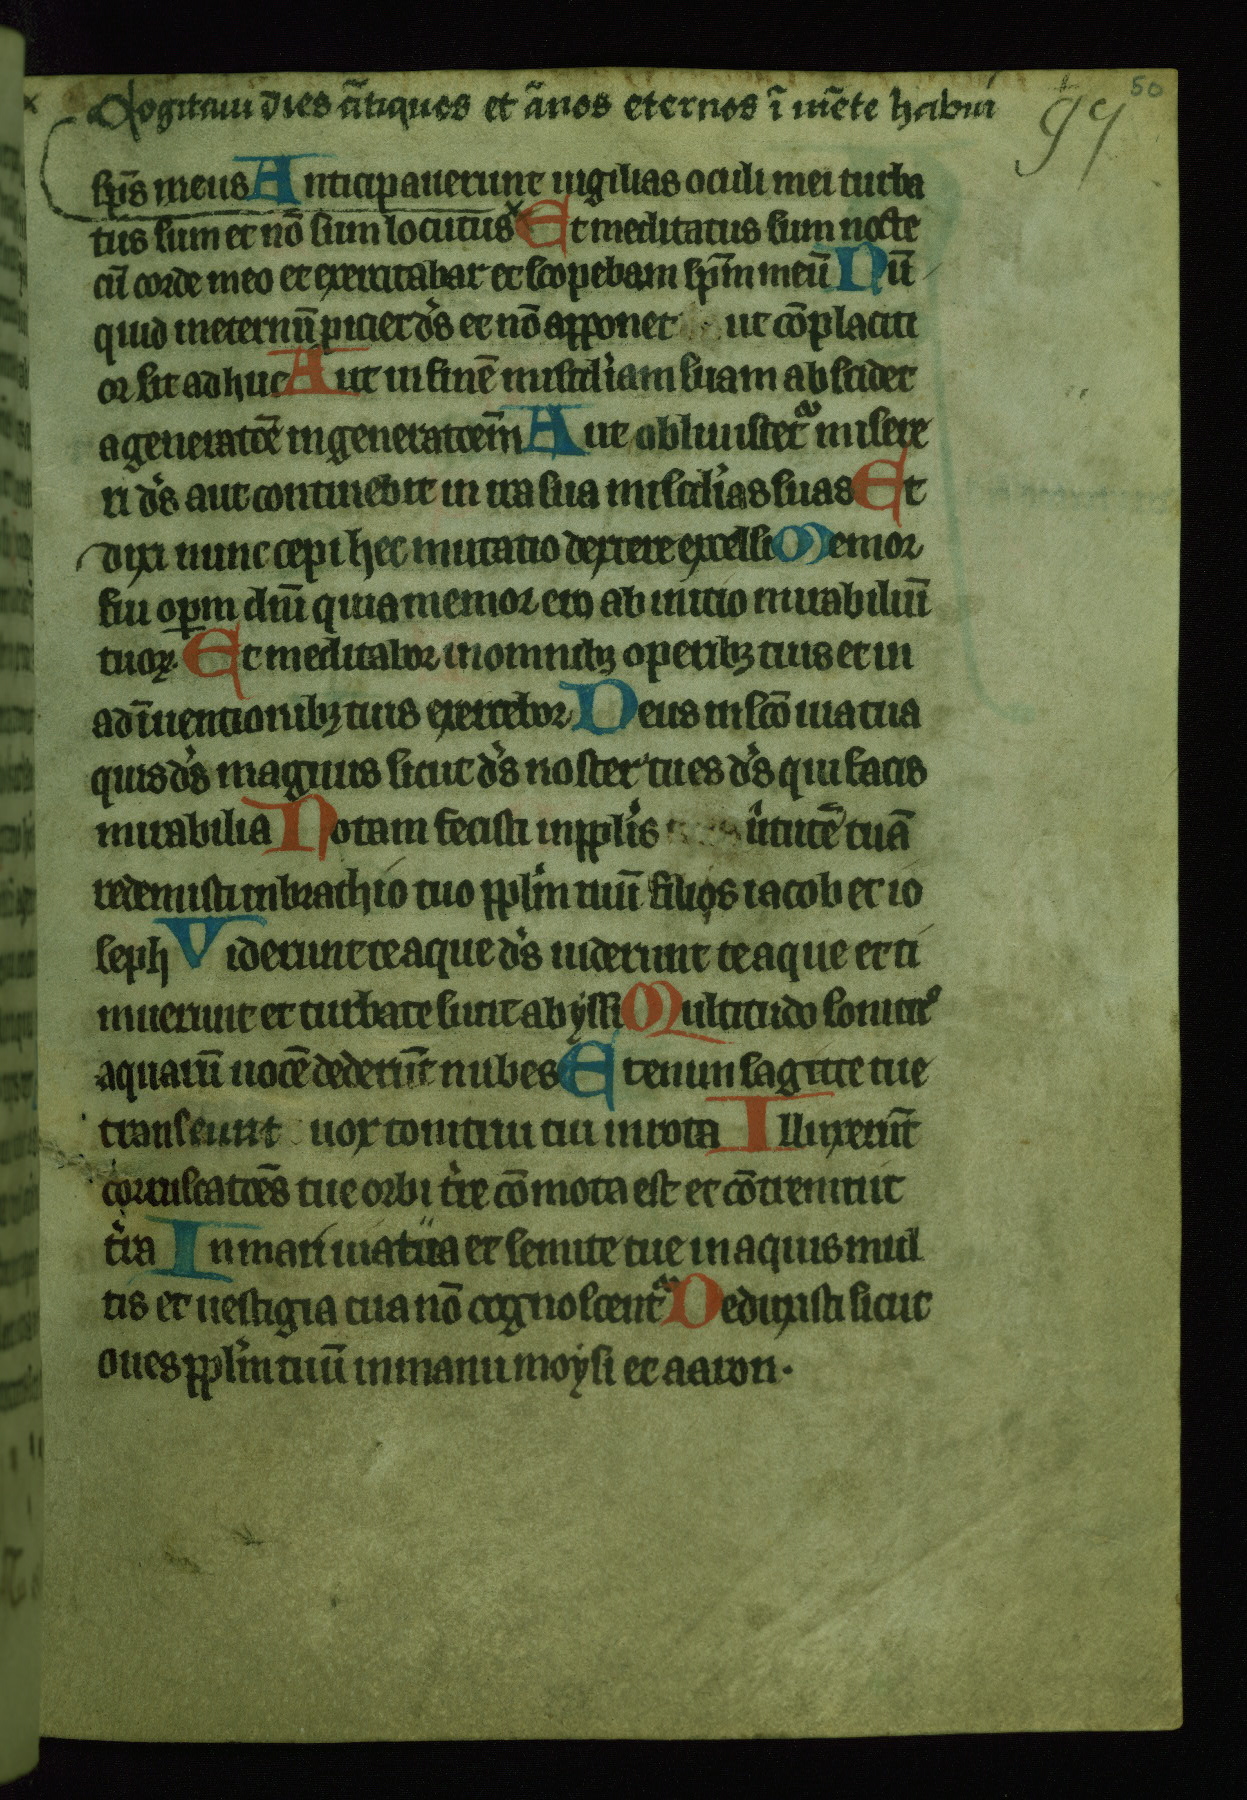 50
Cogitaui dies ãtiquos et ãnos eternos ĩ mẽte habui
99
sp̃s meus Anticipauerunt uigilias oculi mei turba
tus sum et nõ sum locutus Et meditatus sum nocte
cũ corde meo et exercitabar et scopebam sp̃m meũ Nũ
quid ineternũ piciet d̃s et nõ apponet ut cõplaciti
or sit adhuc Aut in finẽ misc̃diam suam abscidet
a generatõe in generatoem̃ Aut obliuiscet᷑ misere
ri d̃s aut continebit in ira sua misc̃dias suas Et
dixi nunc cepi hec mutatio dextere excelsi Memor
fui op̃m dñi quia memor ero ab initio mirabiliũ
tuoꝝ Et meditabor in omnibꝫ operibꝫ tuis et in
adĩuentionibꝫ tuis exercebor Deus in sc̃o uia tua
quis d̃s magnus sicut d̃s noster tu es d̃s qui facis
mirabilia Notam fecisti in ppl̃is uirtutẽ tuã
redemisti in brachio tuo ppl̃m tuũ filios iacob et io
seph Viderunt te aque d̃s uiderunt te aque et ti
muerunt et turbate sunt abyssi Multitudo sonitꝰ
aquarũ uocẽ dederũt nubes Etenim sagitte tue
transeunt uox tonitrui tui in rota Illuxerũt
coruscatões tue orbi t̃re cõmota est et cõtremuit
t̃ra In mari uia tua et semite tue in aquis mul
tis et uestigia tua nõ cognoscent᷑ Deduxisti sicut
oues ppl̃m tuũ in manu moysi et aaron.